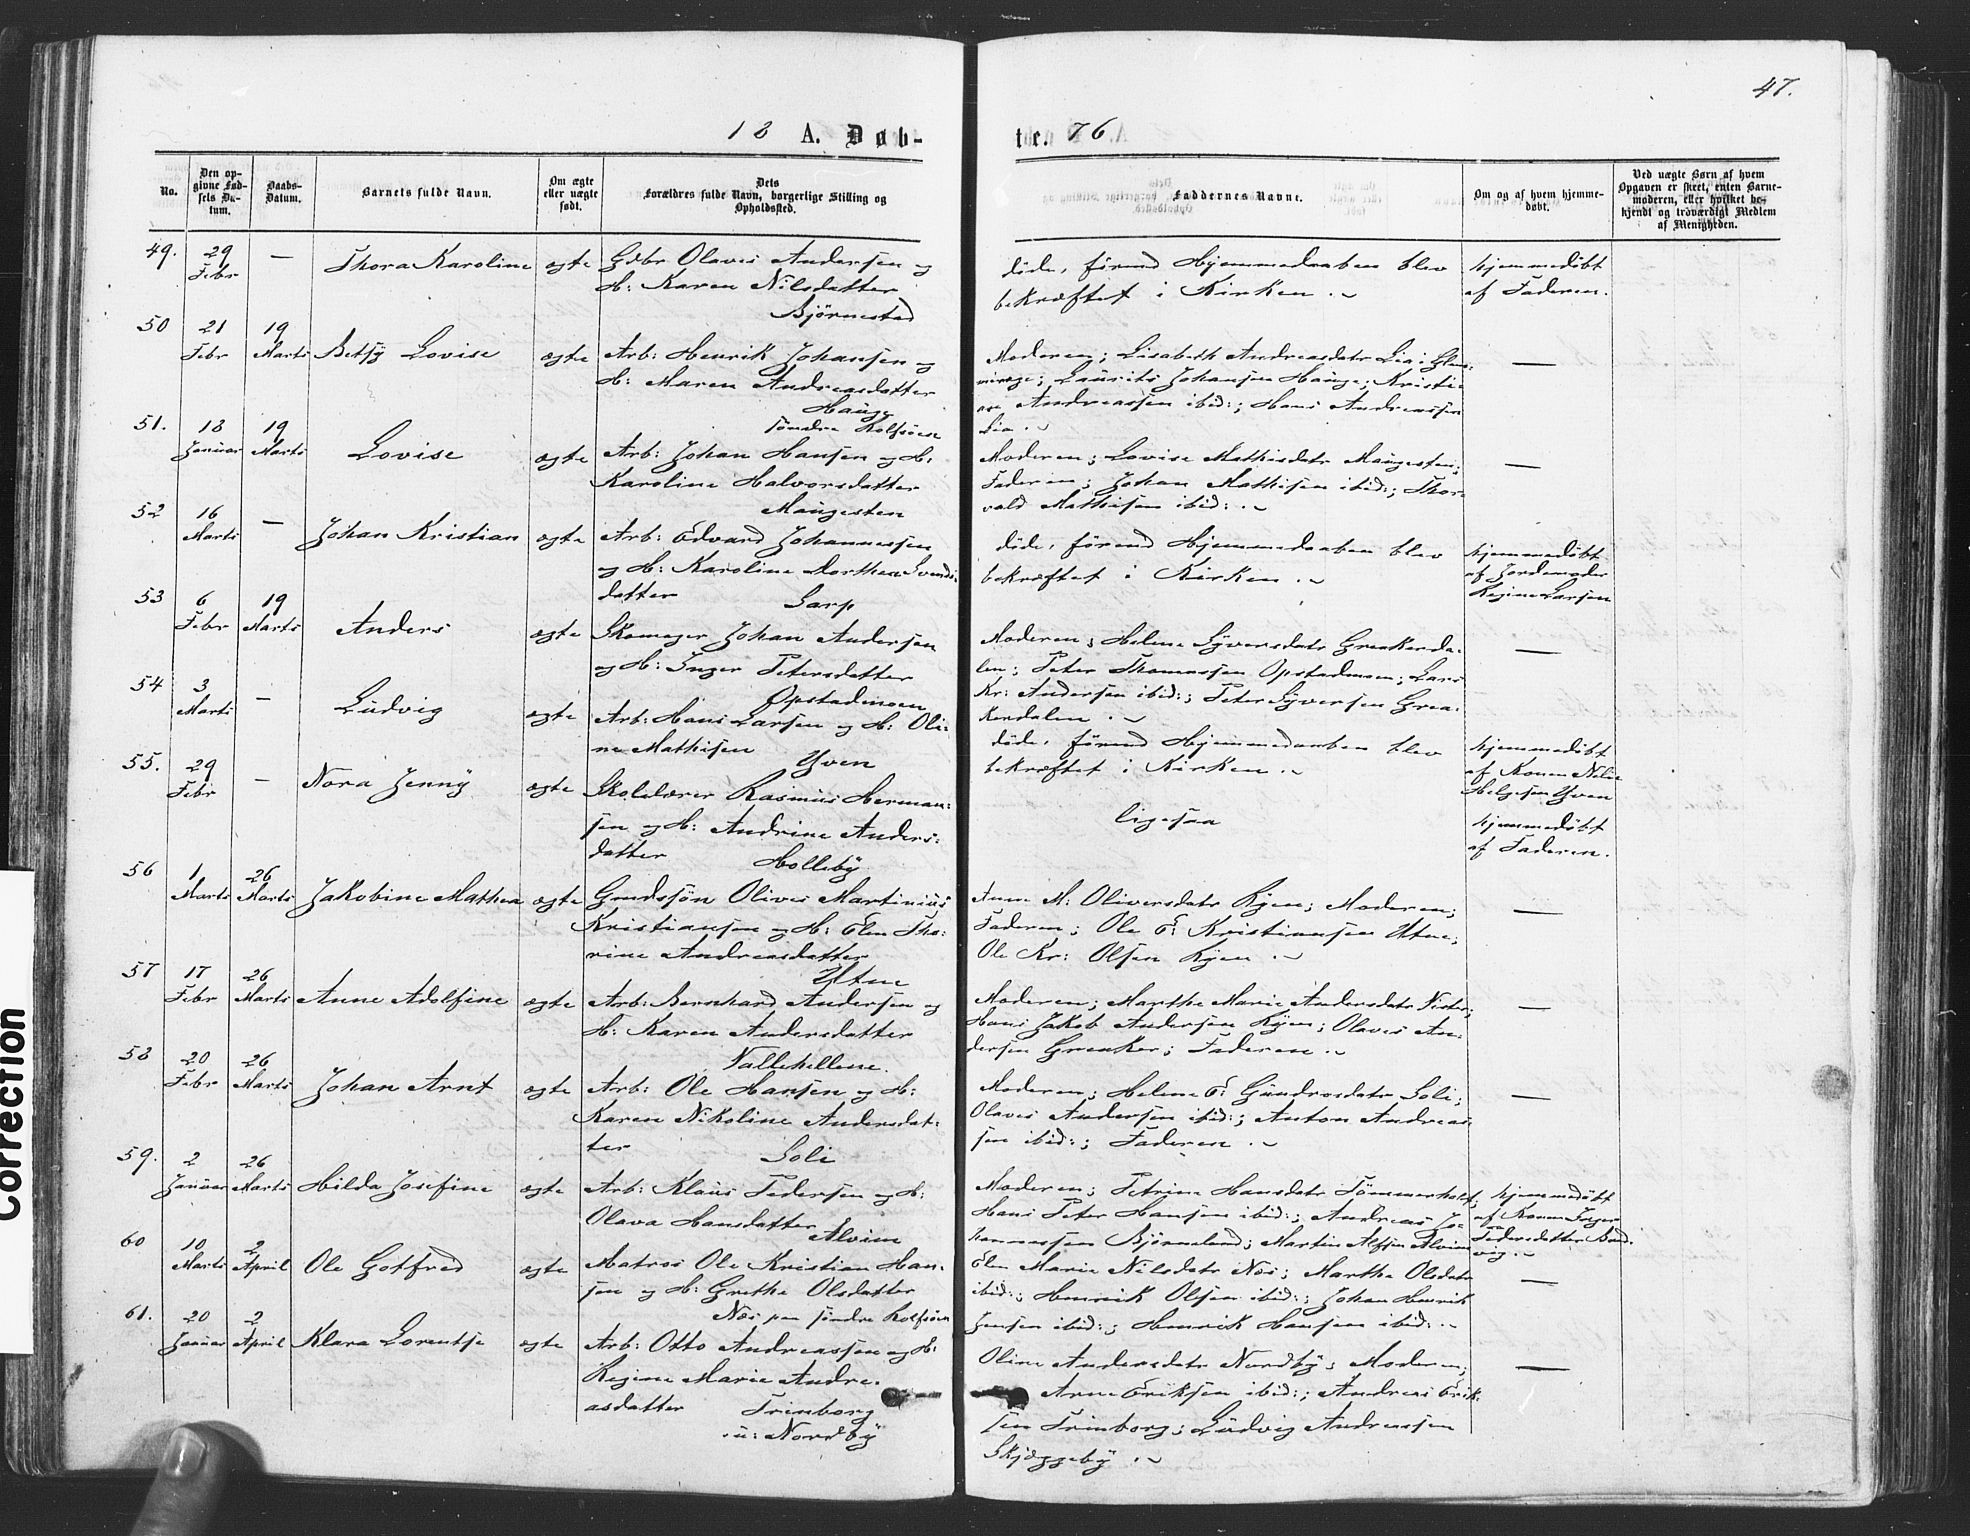 47.
18 A. Døb-te. 76
No.
Den opgivne Fødsels Datum.
Daabs-Datum.
Barnets fulde Navn.
Om ægte eller uægte født.
Dets Forældres fulde Navn, borgerlige Stilling og Opholdssted.
Faddernes Navne.
Om og af hvem hjemmedøbt.
Ved uægte Børn af hvem Opgaven er skeet, enten Barnemoderen, eller hvilket bekjendt og troværdigt Medlem af Menigheden.
49. 29 Febr — Thora Karoline ægte Gdbr Olaves Andersen og
H: Karen Nilsdatter
Bjørnestad
døde, førend Hjemmedaaben blev
bekræftet i Kirken.
hjemmedøbt
af Faderen.
50 21 Febr 19 Marts Betsy Lovise ægte Arb: Henrik Johansen og
H: Maren Andreasdatter
Hauge
søndre Rolfsøen
Moderen; Lisabeth Andreasdatr Lia i Glem-
minge; Laurits Johansen Hauge; Kristi-
ane Andreassen ibid:; Hans Andreassen
Lia. —
51. 18 Januar 19 Marts Lovise ægte Arb: Johan Hansen og H:
Karoline Halvorsdatter
Maugesten
Moderen; Lovise Mathisdatr Maugesten;
Faderen; Johan Mathisen ibid:; Thor-
vald Mathisen ibid: —
52 16 Marts — Johan Kristian ægte Arb: Edvard Johannessen
og H: Karoline Marthea Svends-
datter Sarp
døde, førend Hjemmedaaben blev
bekræftet i Kirken.
hjemmedøbt
af Jordemoder
Regine Larsen
53 6 Febr 19 Marts Anders ægte Skomager Johan Andersen
og H: Inger Petersdatter
Opstadmoen
Moderen; Helene Syversdatr Greakerda-
len; Peter Thomassen Opstadmoen; Lars
Kr: Andersen ibid:; Peter Syversen Grea-
kerdalen. —
54 3 Marts — Ludvig ægte Arb: Hans Larsen og H: Oli-
ne Mathisen Yven
døde, førend Hjemmedaaben blev
bekræftet i Kirken.
hjemmedøbt
af Konen Nelie
Helgesen Yven
55. 29 Febr — Nora Jenny ægte Skolelærer Rasmus Herman-
sen og H: Andrine Anders-
datter Holleby
ligesaa
hjemmedøbt
af Faderen.
56 1 Marts 26 Marts Jakobine Mathea ægte Grdssøn Olives Martinius
Kristiansen og H: Elen Tho-
rine Andreasdatter
Ytne
Anne M: Oliversdatr Kjen; Moderen;
Faderen; Ole E: Kristiansen Utne;
Ole Kr: Olsen Kjen. —
57 17 Febr 26 Marts Anne Adolfine ægte Arb: Bernhard Andersen og
H: Karen Andersdatter
Vallehellene.
Moderen; Marthe Marie Andersdatr Vister;
Hans Jakob Andersen Kjen; Olaves An-
dersen Greaker; Faderen. —
58 20 Febr 26 Marts Johan Arnt ægte Arb: Ole Hansen og H:
Karen Nikoline Andersdat-
ter Soli
Moderen; Helene E: Gundrosdatr Soli;
Olaves Andersen ibid:; Anton Andreas-
sen ibid:; Faderen. —
59. 2 Januar 26 Marts Hilda Josefine ægte Arb: Klaus Pedersen og H:
Olava Hansdatter Alvim
Moderen; Petrine Hansdatr Tømmerholt;
Hans Peter Hansen ibid:; Andreas Jo-
hannessen Bjørneland; Martin Alfsen Alvim
hjemmedøbt
af Konen Inger
Pedersdatter
60 10 Marts 2 April Ole Gotfred ægte Matros Ole Kristian Han-
sen og H: Grethe Olsdatter
Næs paa søndre Rolfsøen
Elen Marie Nilsdatr Næs; Marthe Olsdatr
ibid:; Henrik Olsen ibid:; Johan Henrik
Jensen ibid:; Henrik Hansen ibid: —
61. 20 Januar 2 April Klara Lorentse ægte Arb: Otto Andreassen og H:
Regine Marie Andre-
asdatter Trinborg
u: Nordby
Oline Andersdatr Nordby; Moderen;
Arne Eriksen ibid:; Andreas Erik-
sen Trinborg; Ludvig Andreassen
Skjæggeby. —
Correction